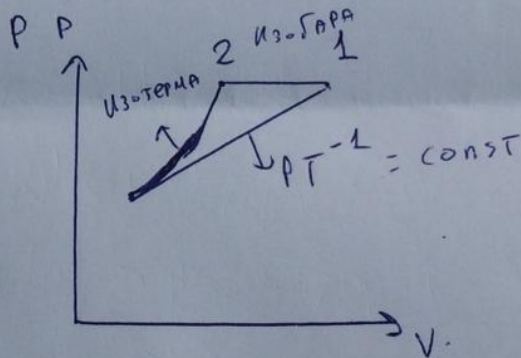 P P
2 Изобара 1
Изотерма
PT^-1 = const
V.